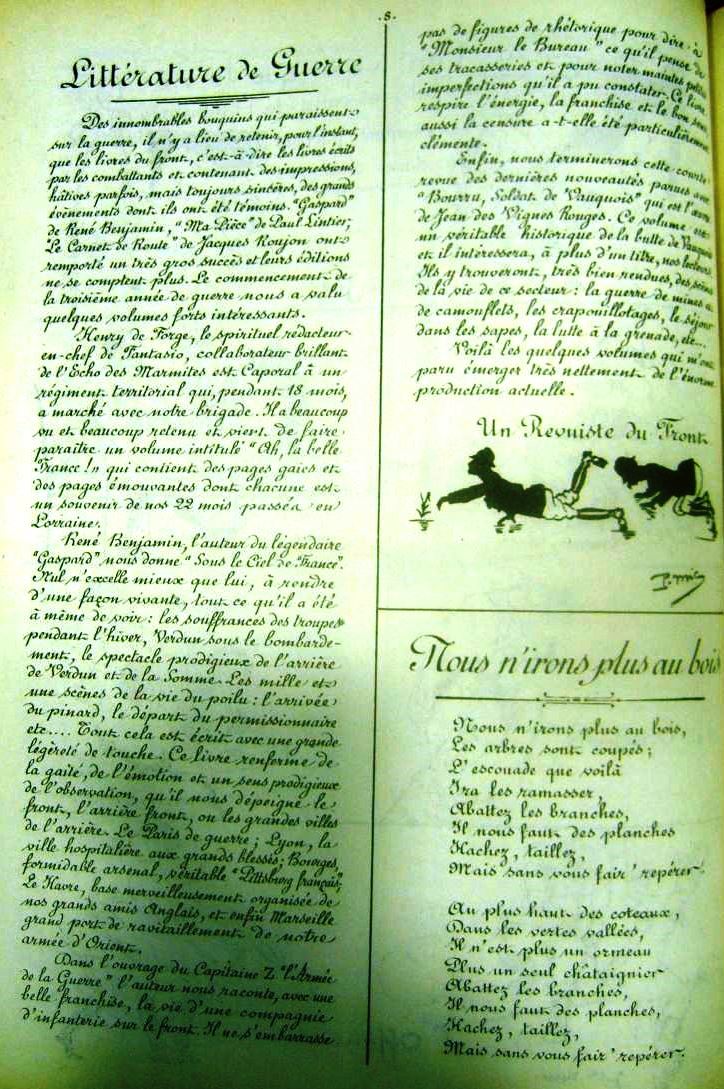 .8.
Littérature de Guerre
Des innombrables bouquins qui paraissent
sur la guerre, il n'y a lieu de retenir, pour l'instant,
que les livres du front, c'est-à-dire les livres écrits
par les combattants et contenant des impressions,
hâtives parfois, mais toujours sincères, des grands
évènements dont ils ont été témoins. "Gaspard"
de René Benjamin, "Ma Pièce" de Paul Lintier;
"Le Carnet de Route" de Jacques Roujon ont
remporté un très gros succès et leurs éditions
ne se comptent plus. Le commencement de
la troisième année de guerre nous a valu
quelques volumes forts intéressants.
Henry de Forge, le spirituel rédacteur-
en-chef de Fantasio, collaborateur brillant
de l'Echo des Marmites est Caporal à un
régiment territorial qui, pendant 18 mois,
a marché avec notre brigade. Il a beaucoup
vu et beaucoup retenu et vient de faire
paraître un volume intitulé "Ah, la belle
France!" qui contient des pages gaies et
des pages émouvantes dont chacune est
un souvenir de nos 22 mois passés en
Lorraine.
René Benjamin, l'auteur du légendaire
"Gaspard" nous donne "Sous le Ciel de France".
Nul n'excelle mieux que lui, à rendre
d'une façon vivante, tout ce qu'il a été
à même de voir : les souffrances des troupes
pendant l'hiver, Verdun sous le bombarde-
ment, le spectacle prodigieux de l'arrière
de Verdun et de la Somme. Les mille et
une scènes de la vie du poilu : l'arrivée
du pinard, le départ du permissionnaire
etc.... Tout cela est écrit avec une grande
légèreté de touche. Ce livre renferme de
la gaité, de l'émotion et un sens prodigieux
de l'observation, qu'il nous dépeigne le
front, l'arrière front, ou les grandes villes
de l'arrière. Le Paris de guerre ; Lyon, la
ville hospitalière aux grands blessés; Bourges,
formidable arsenal, véritable "Pittsburg français;
Le Havre, base merveilleusement organisée de
nos grands amis Anglais, et enfin Marseille
grand port de ravitaillement de notre
armée d'Orient.
Dans l'ouvrage du Capitaine Z "l'Armée
de la Guerre" l'auteur nous raconte, avec une
belle franchise, la vie d'une compagnie
d'infanterie sur le front. Il ne s'embarrasse
pas de figures de rhétorique pour dire à
"Monsieur le Bureau" ce qu'il pense de
ses tracasseries et pour noter maintes petites
imperfections qu'il a pu constater. Ce livre
respire l'énergie, la franchise et le bon sens
aussi la censure a-t-elle été particulièrement
clémente.
Enfin, nous terminerons cette courte
revue des dernières nouveautés parues avec
"Bourru, Soldat de Vauquois" qui est l'œuvre
de Jean des Vignes Rouges. Ce volume est
un véritable historique de la butte de Vauquois
et il intéressera, à plus d'un titre, nos lecteurs
Ils y trouveront, très bien rendues, des scènes
de la vie de ce secteur : la guerre de mines et
de camouflets, les crapouillotages, le séjour
dans les sapes, la lutte à la grenade, etc...
Voilà les quelques volumes qui m'ont
paru émerger très nettement de l'énorme
production actuelle.
Un Revuiste du Front
Nous n'irons plus au bois
Nous n'irons plus au bois,
Les arbres sont coupés ;
L'escouade que voilà
Ira les ramasser,
Abattez les branches,
Il nous faut des planches
Hachez, taillez,
Mais sans vous fair' repérer.
Au plus haut des coteaux,
Dans les vertes vallées,
Il n'est plus un ormeau
Plus un seul chataignier
Abattez les branches,
Il nous faut des planches,
Hachez, taillez,
Mais sans vous fair' repérer.